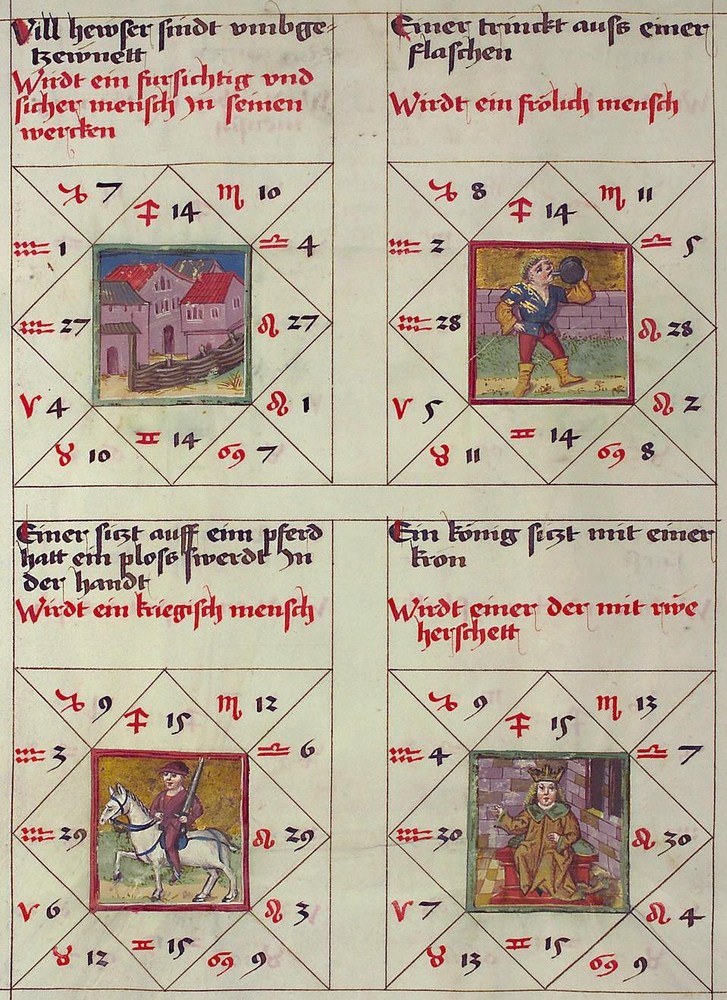 Vill hewser sindt vmbge-
tzewnett
Wirdt ein fursichtig vnd
sicher mensch Jn seinen
wercken
♑ 7 ♐ 14 ♏ 10
♒ 1 ♎ 4
♒ 27 ♌ 27
♈ 4 ♌ 1
♉ 10 ♊ 14 ♋ 7
Einer trinckt auss einer
flaschen
Wirdt ein frölich mensch
♑ 8 ♐ 14 ♏ 11
♒ 2 ♎ 5
♒ 28 ♌ 28
♈ 5 ♌ 2
♉ 11 ♊ 14 ♋ 8
Einer sitzt auff eim pferd
hatt ein ploss swerdt Jn
der handt
Wirdt ein kriegisch mensch
♑ 9 ♐ 15 ♏ 12
♒ 3 ♎ 6
♒ 29 ♌ 29
♈ 6 ♌ 3
♉ 12 ♊ 15 ♋ 9
Ein könig sitzt mit einer
kron
Wirdt einer der mit rwe
herschett
♑ 9 ♐ 15 ♏ 13
♒ 4 ♎ 7
♒ 30 ♌ 30
♈ 7 ♌ 4
♉ 13 ♊ 15 ♋ 9